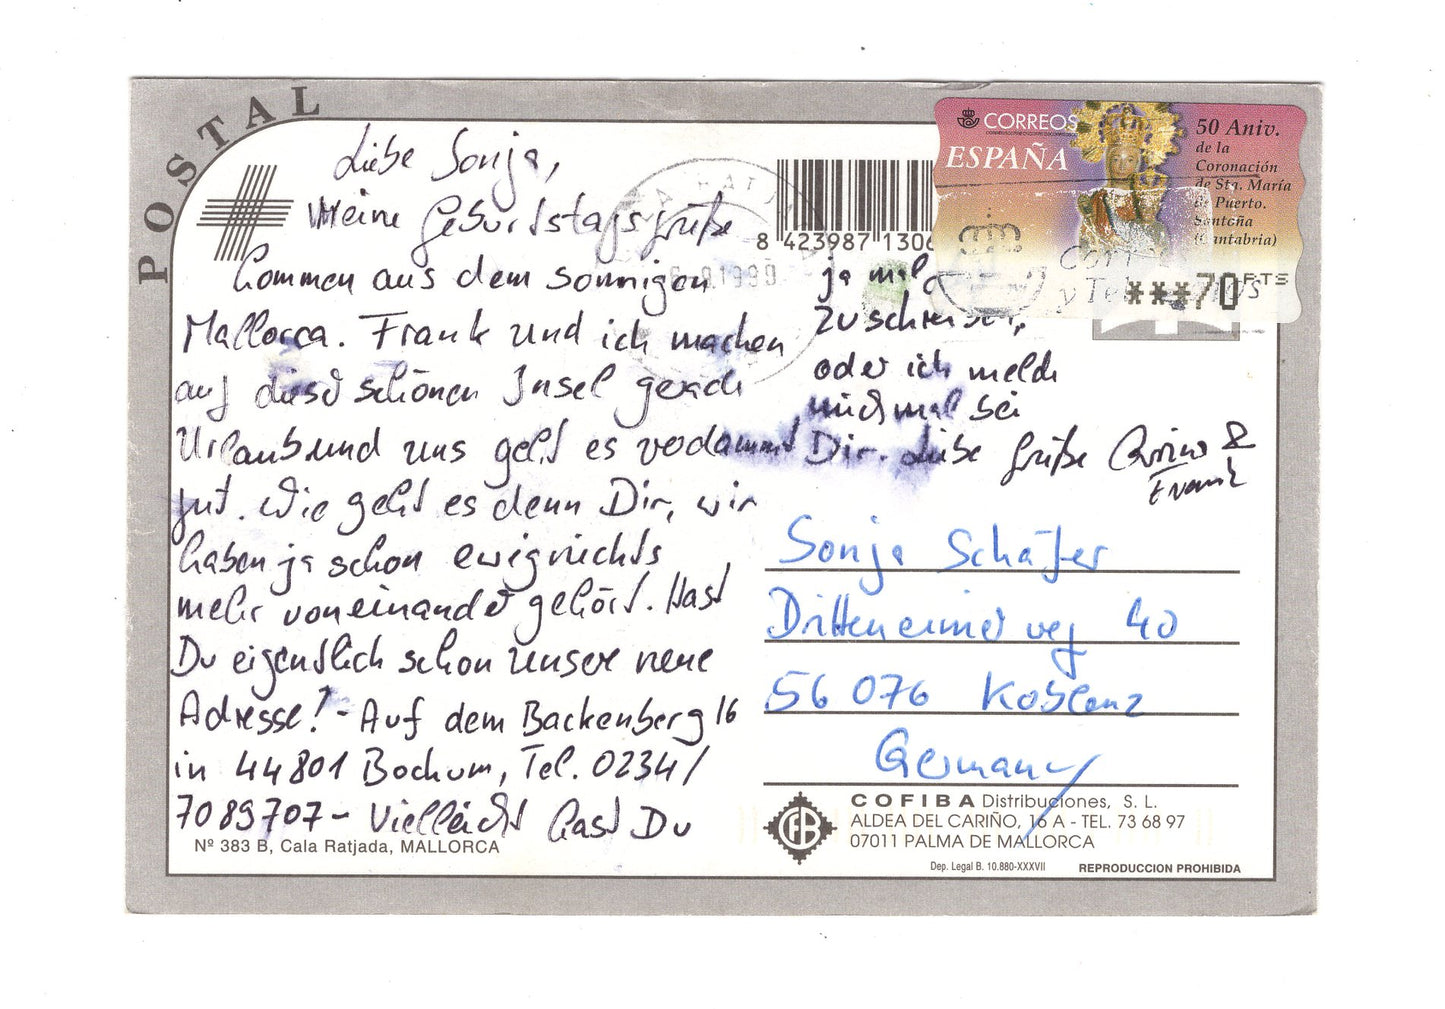 POSTAL
Liebe Sonja,
Meine Geburtstagsgrüße
kommen aus dem sonnigen
Mallorca. Frank und ich machen
auf dieser schönen Insel gerade
Urlaub und uns geht es verdammt
gut. Wie geht es denn Dir, wir
haben ja schon ewig nichts
mehr voneinander gehört. Hast
Du eigentlich schon unsere neue
Adresse! - Auf dem Backenberg 16
in 44801 Bochum, Tel. 0234/
7089707 - Vielleicht hast Du
ja mal
zu schreiben,
oder ich melde
mich mal bei
Dir. Liebe Grüße &
Frank
8 423987 1306
CORREOS
ESPAÑA
50 Aniv.
de la
Coronación
de Sta. María
de Puerto.
Santoña
(Cantabria)
Correos
y Telégrafos
***70 PTS
1999
Sonja Schäfer
Ditteneimer weg 40
56076 Koblenz
Germany
Nº 383 B, Cala Ratjada, MALLORCA
CFB
COFIBA Distribuciones, S. L.
ALDEA DEL CARIÑO, 16 A - TEL. 73 68 97
07011 PALMA DE MALLORCA
Dep. Legal B. 10.880-XXXVII
REPRODUCCION PROHIBIDA